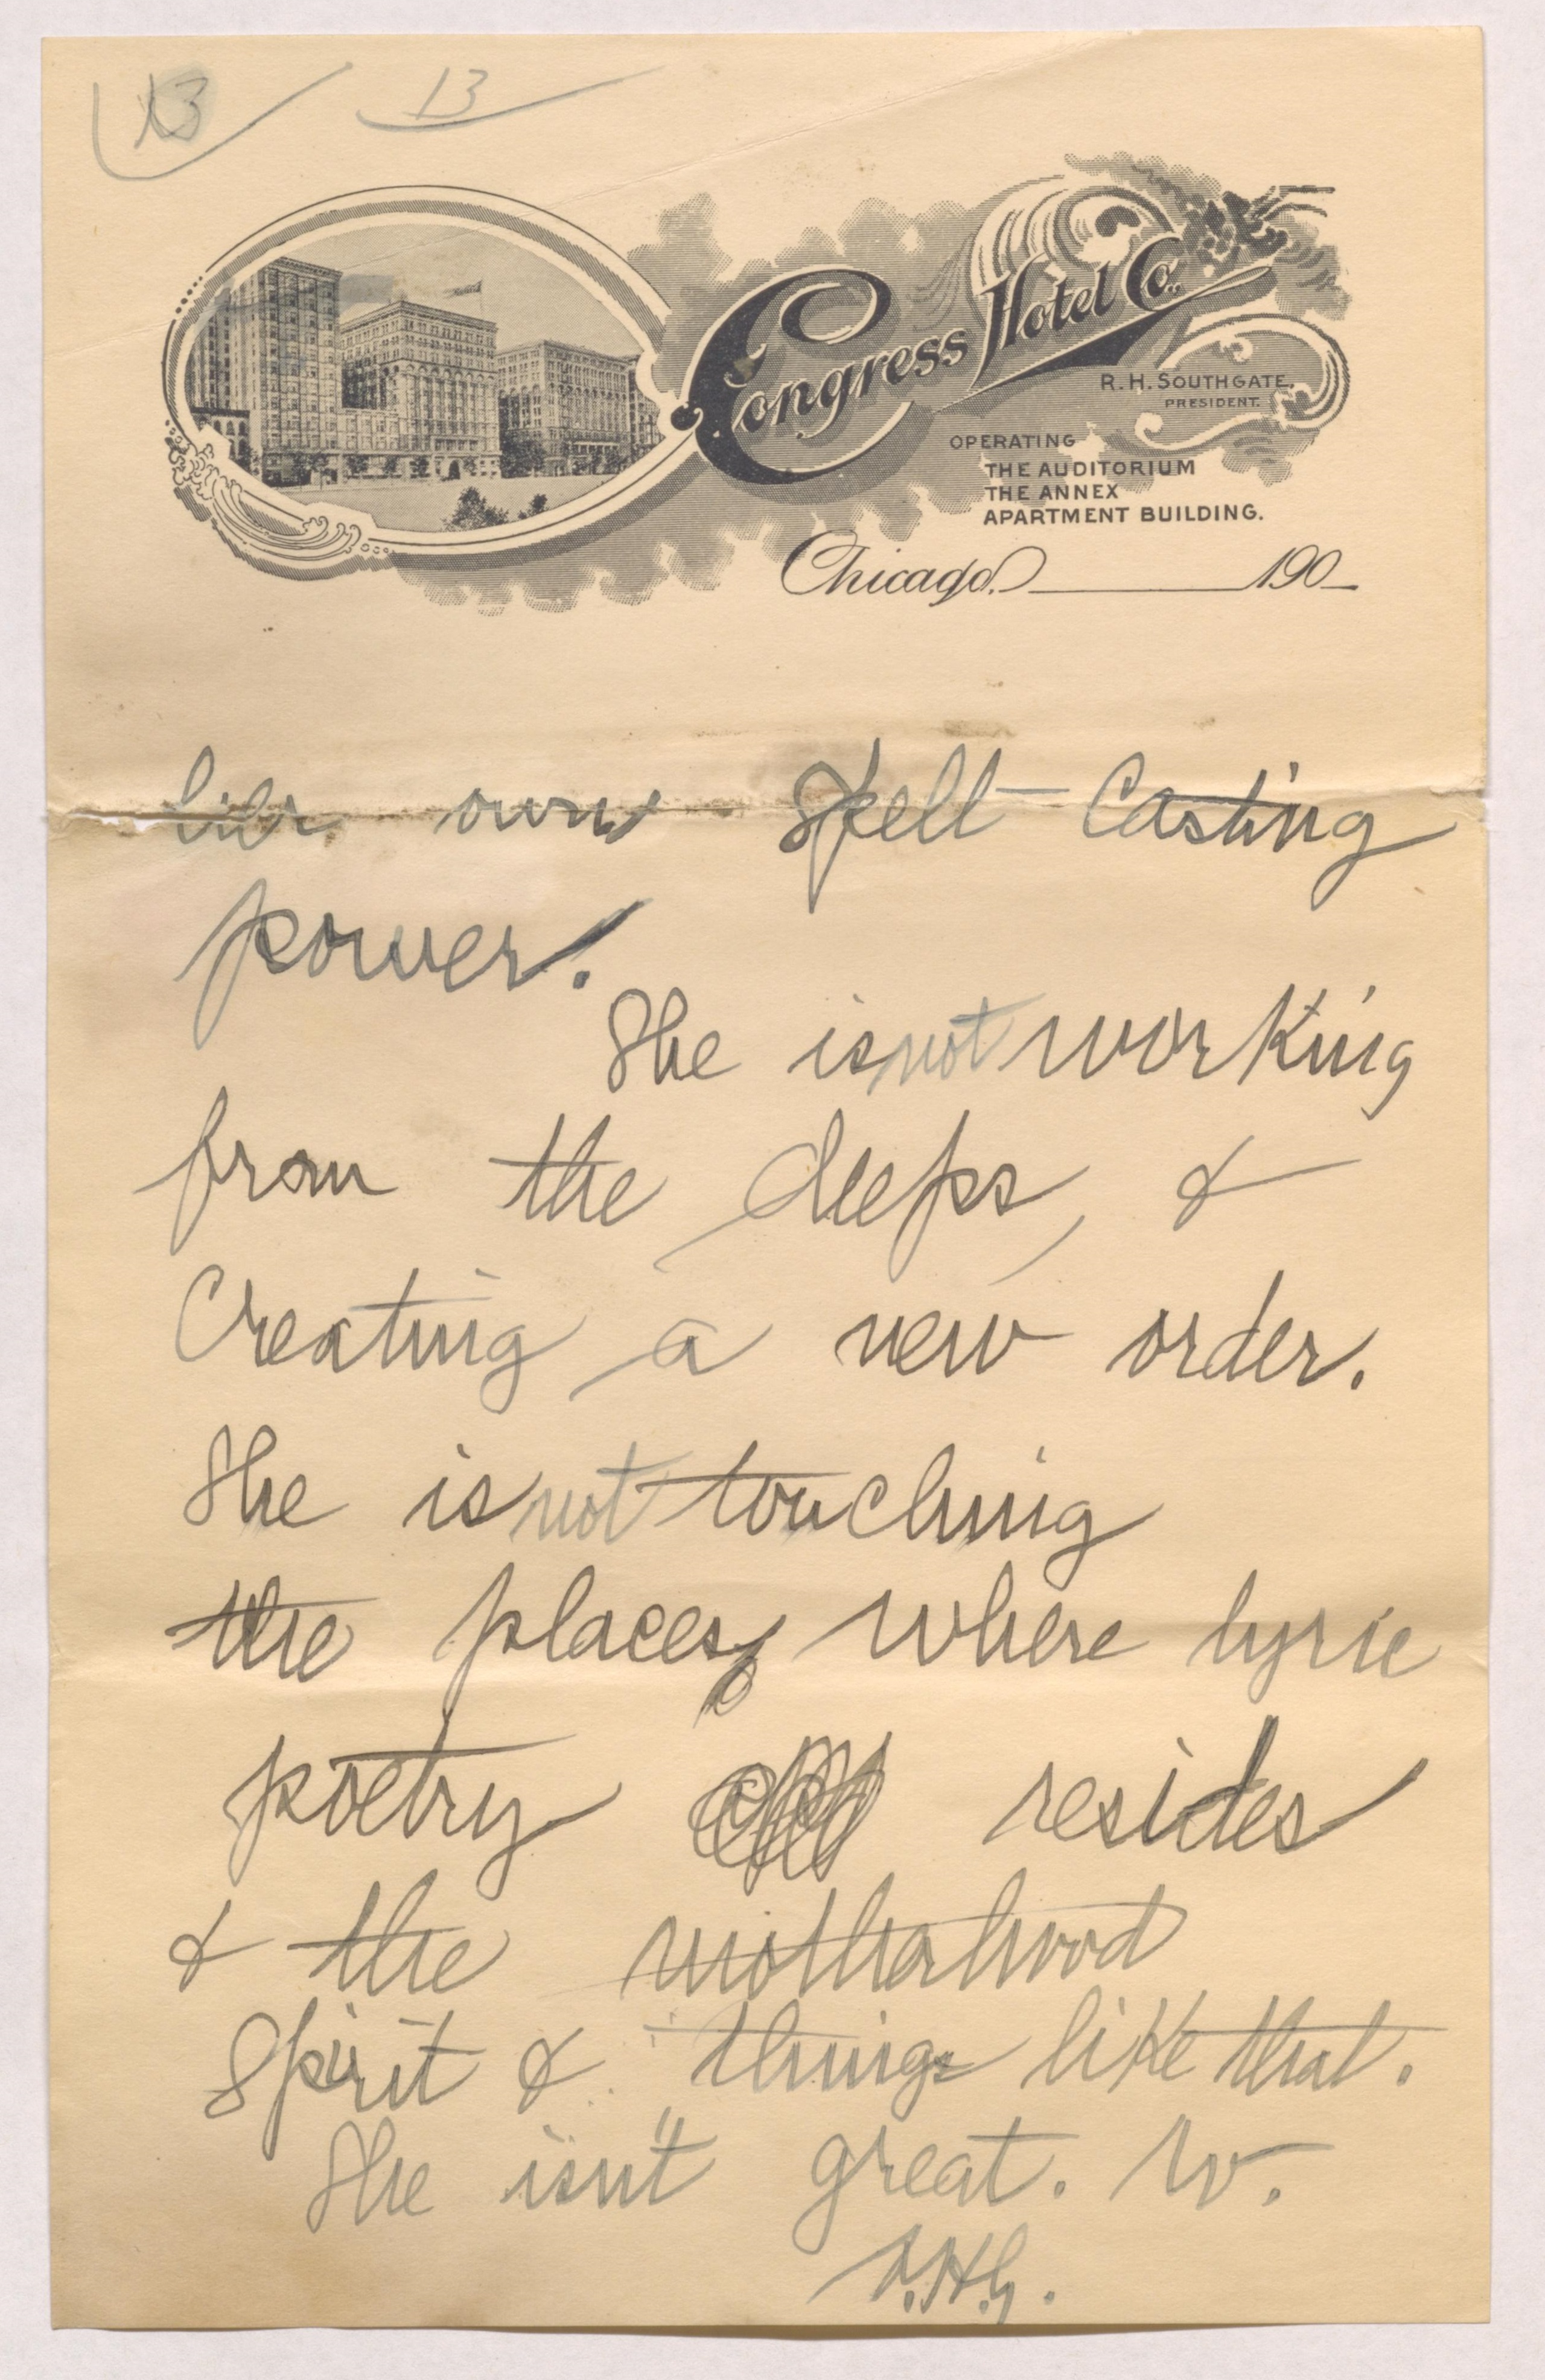 13 13
Congress Hotel Co.
R. H. SOUTHGATE,
PRESIDENT.
OPERATING
THE AUDITORIUM
THE ANNEX
APARTMENT BUILDING.
Chicago. 190
own Spell Casting
power.
She is not working
from the deeps, &
Creating a new order.
She is not touching
the places, where lyric
poetry resides
& the motherhood
Spirit & things like that.
She isn't great. W.